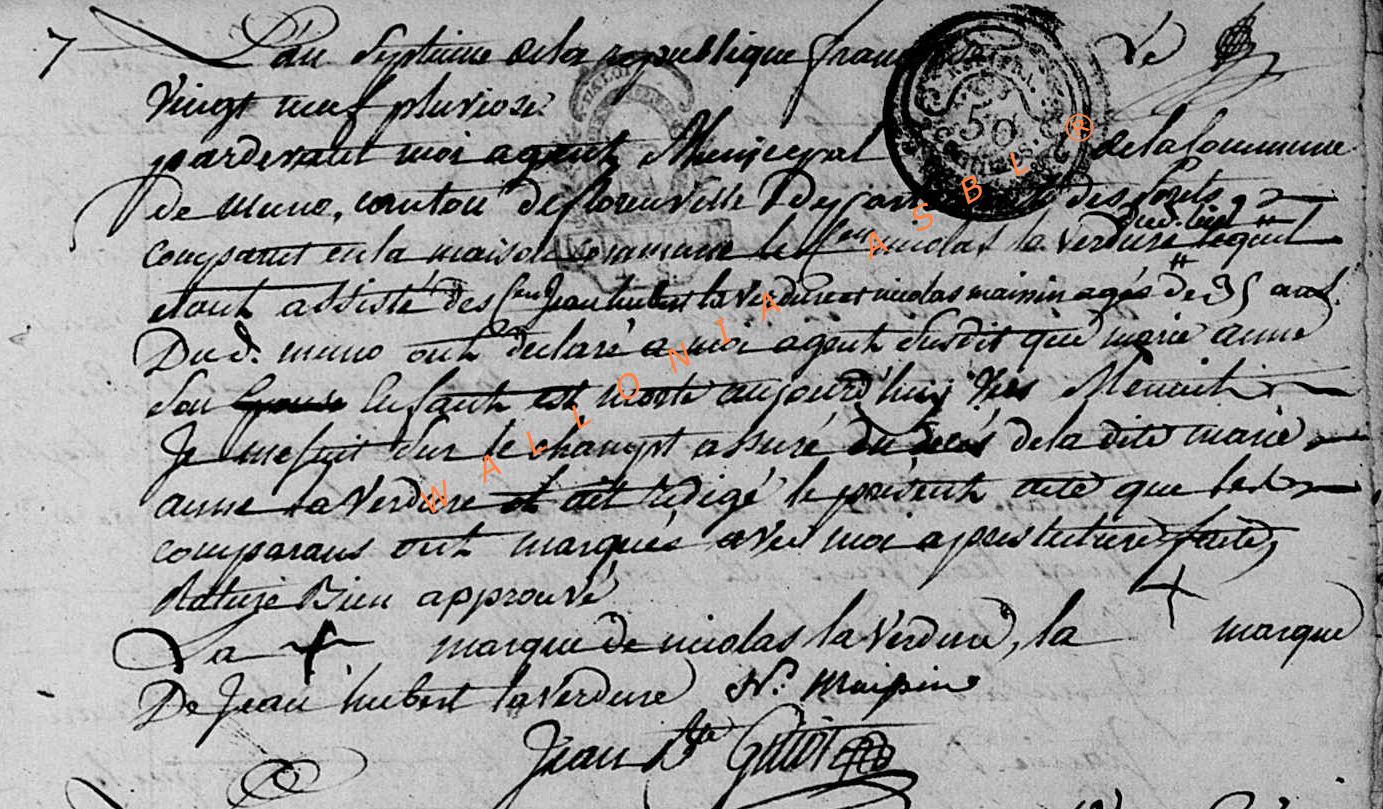 7 L'an septieme de la republique francaise Le
vingt neuf pluviose
pardevant moi agent Municipal de la Commune
de muno, canton de florenville Departement des forets,
50
dud. lieu
comparut en la maison commune le Cen nicolas la verdure lequel
etant assisté des Cen Jean hubert la Verdure et nicolas maipin agés de 35 ans
Dud. muno ont declaré a moi agent susdit que marie anne
son Enfant est morte aujourd'huy
Je me suit sur le champt assuré du deces de la dite marie
anne la Verdure et ait redigé le présent acte que les
comparans ont marqués avec moi apres lecture faite,
Rature Bien approuvé
La + marque de nicolas la Verdure, la + marque
De Jean hubert la Verdure N. Maipin
Jean Bte
WALLONIA ASBL ®